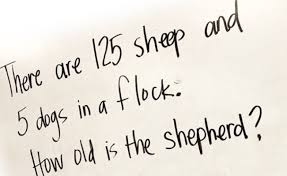 There are 125 sheep and
5 dogs in a flock.
How old is the shepherd?